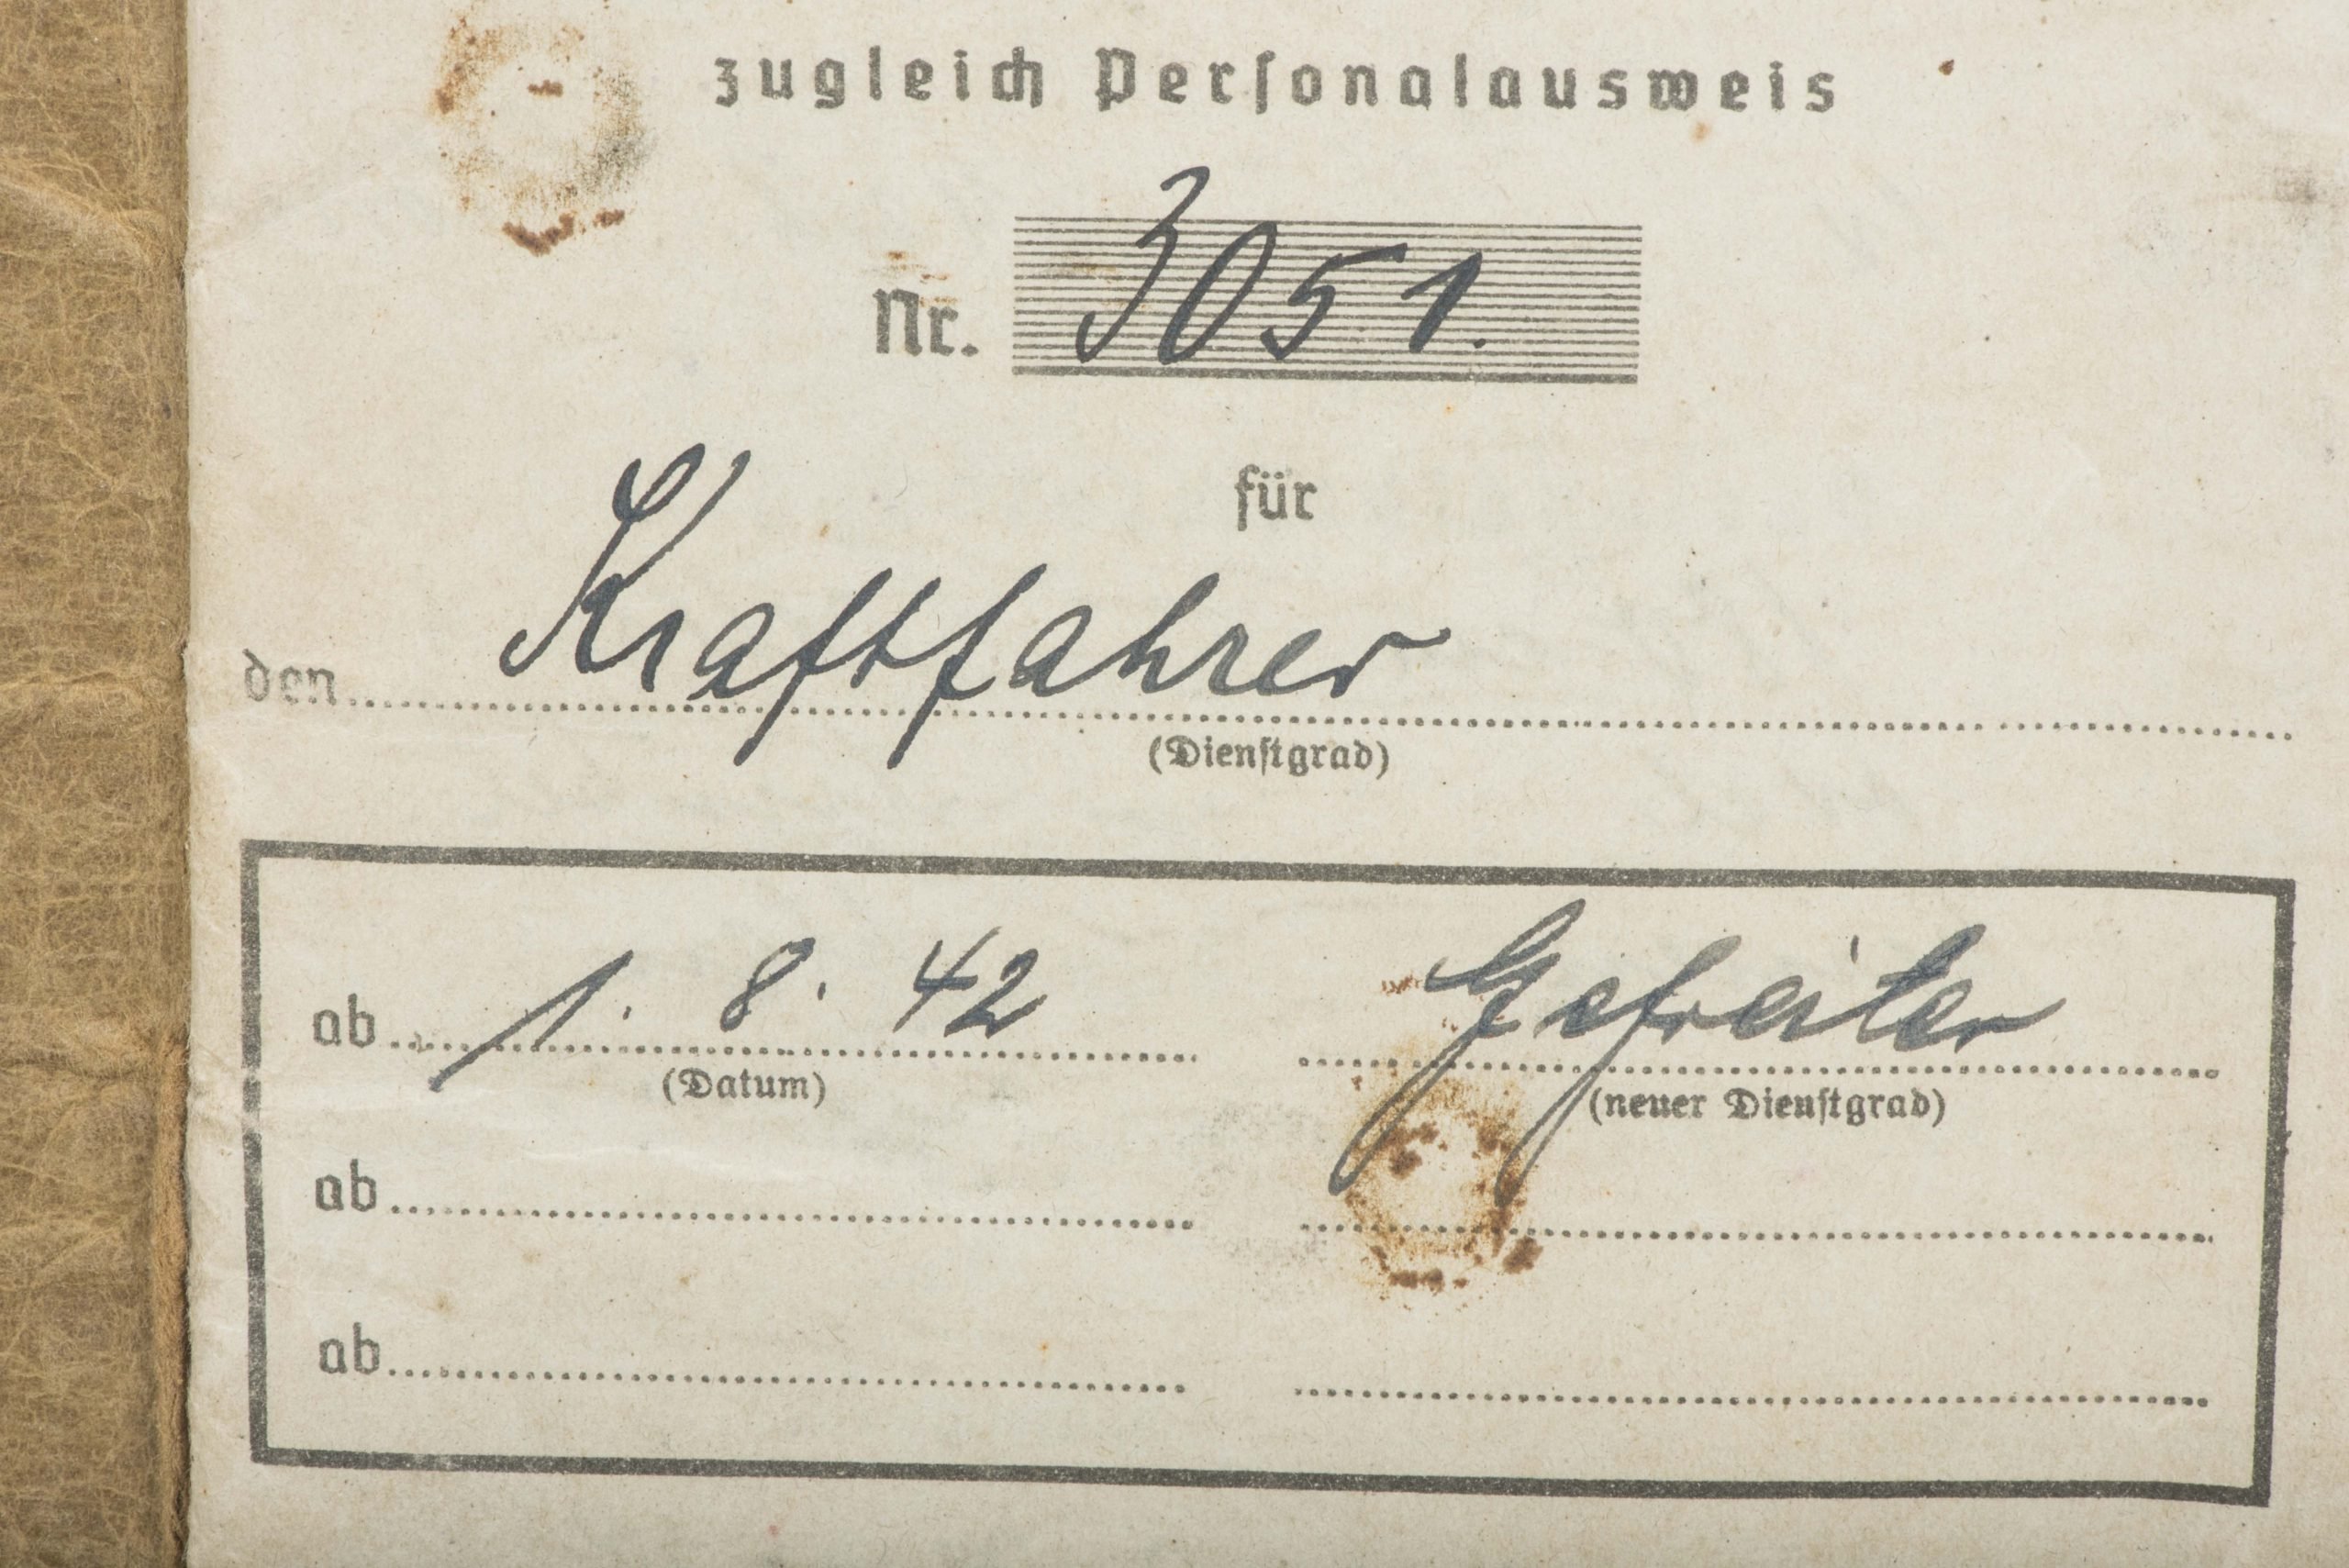 zugleich Personalausweis
Nr. 3051.
für
den Kraftfahrer
(Dienstgrad)
ab 1. 8. 42 Gefreiter
(Datum) (neuer Dienstgrad)
ab
ab